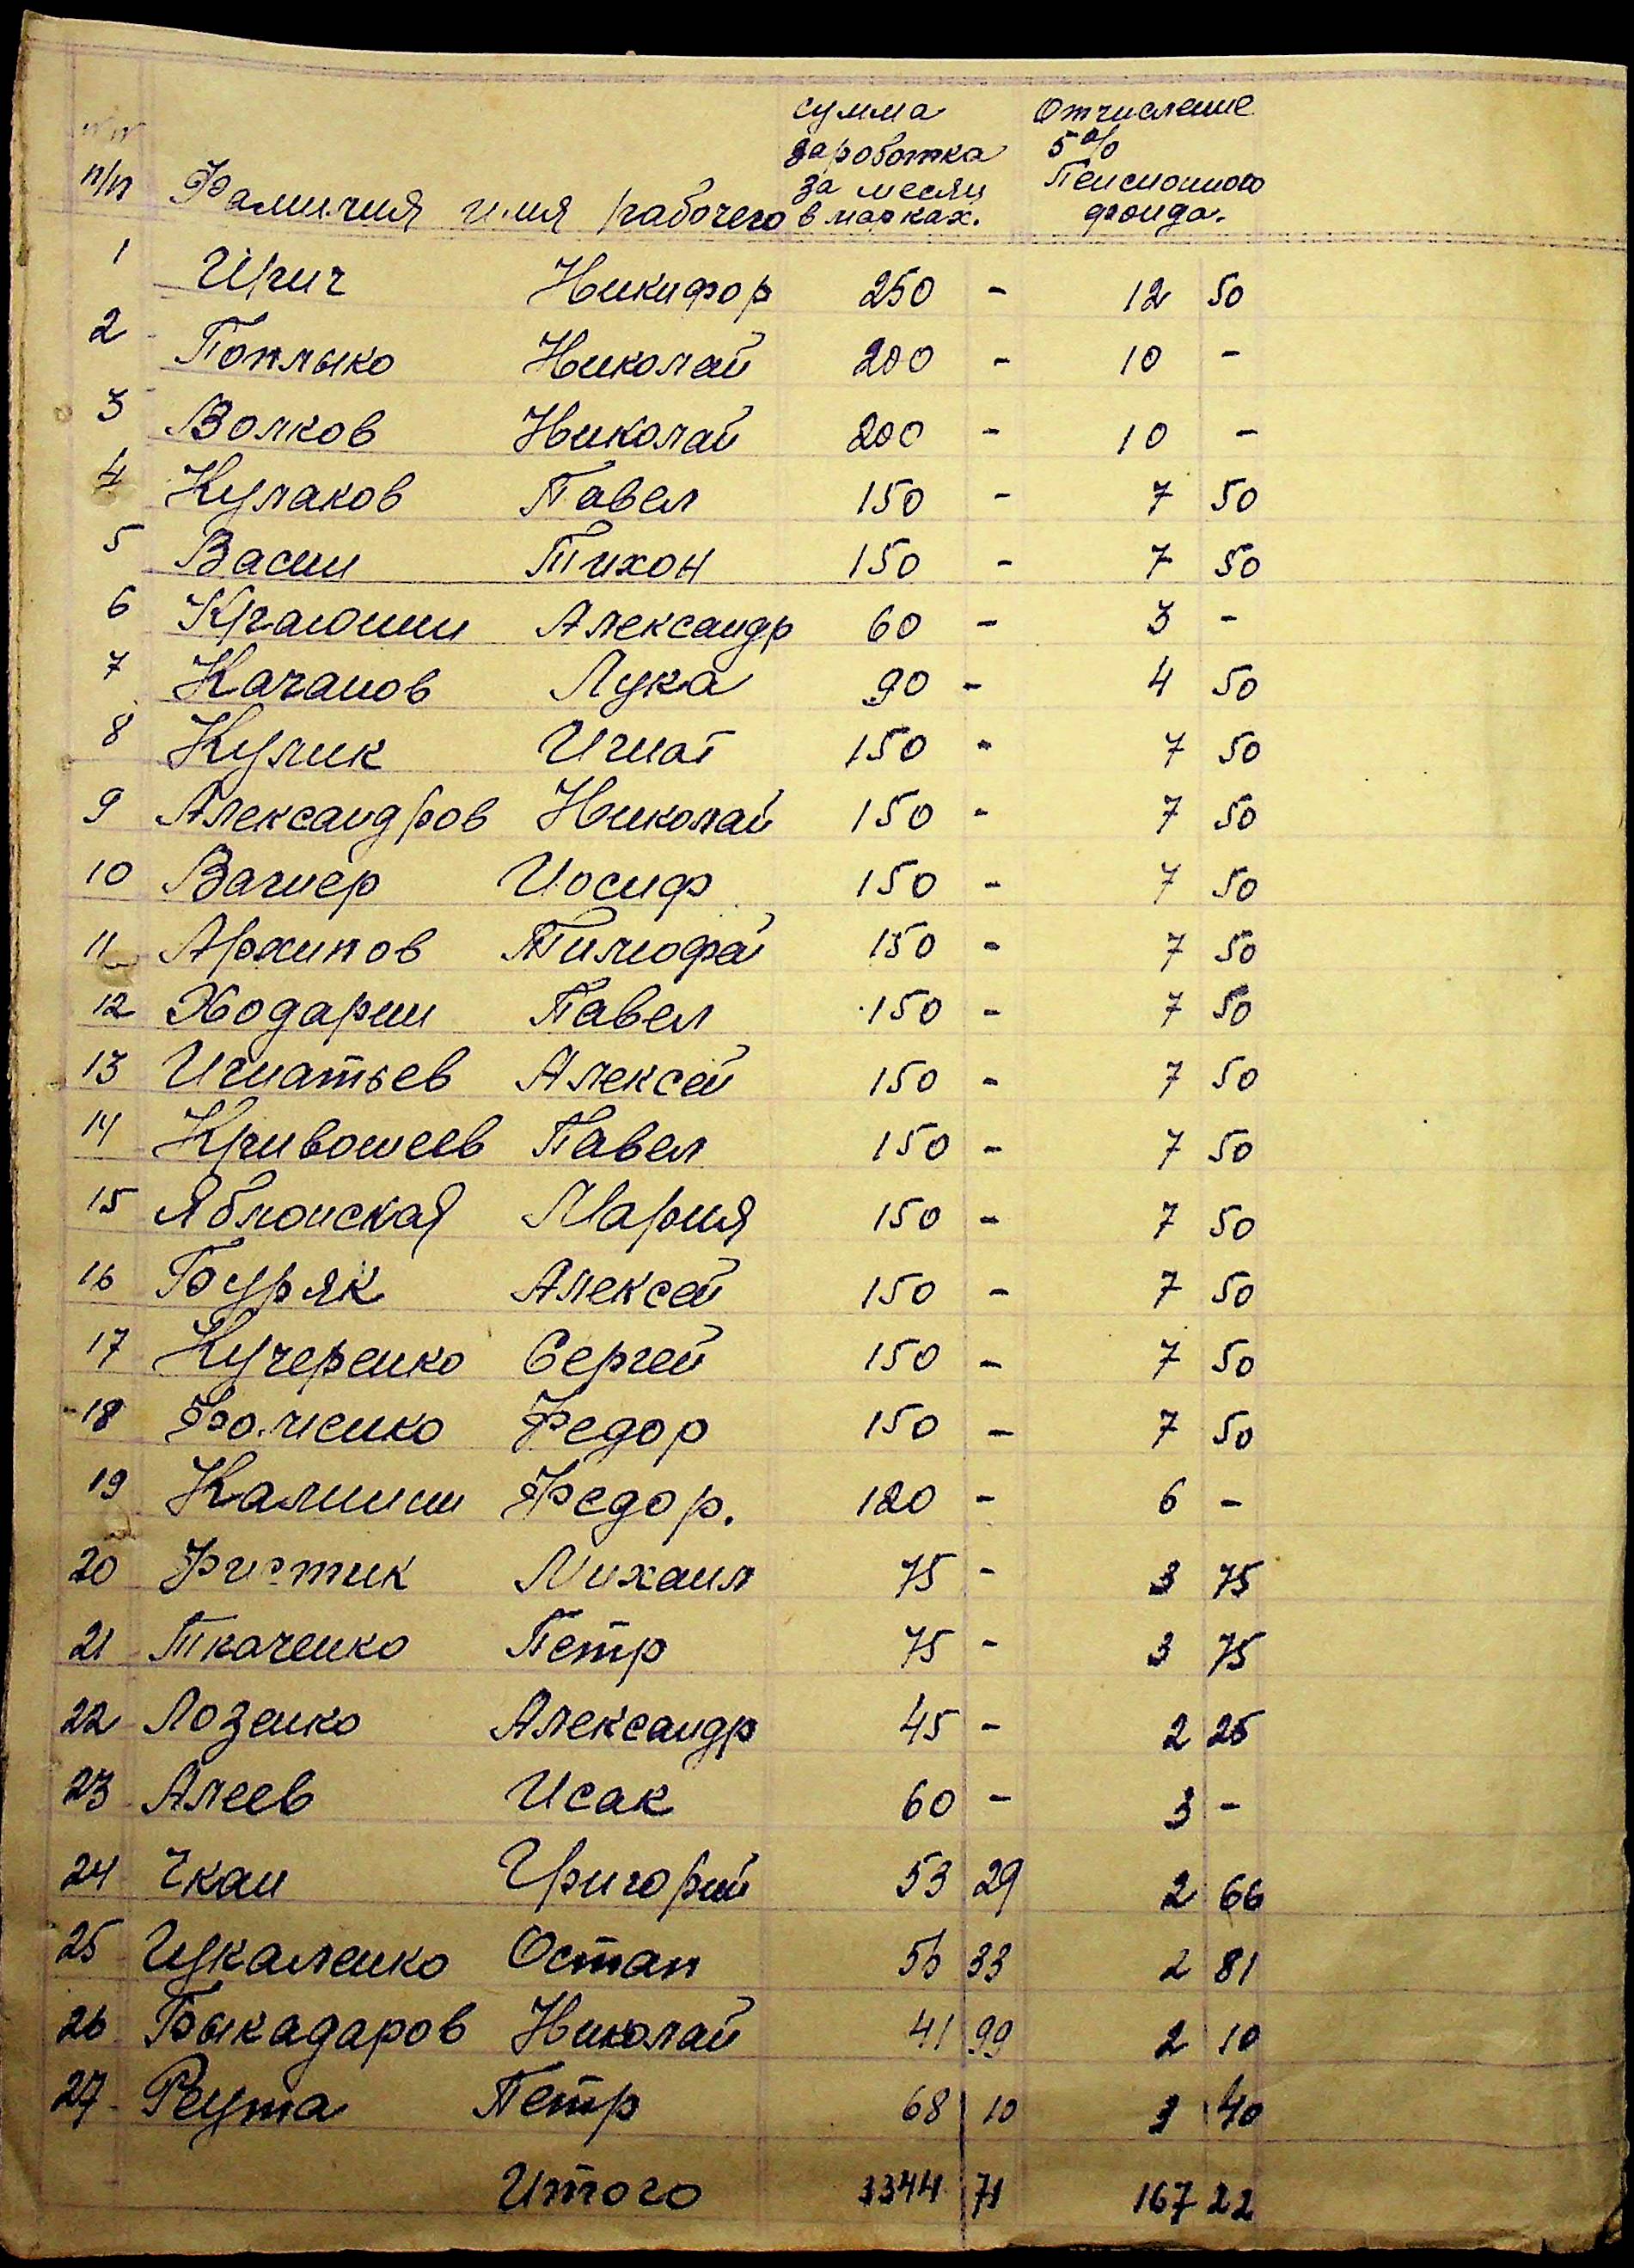 № №
п/п Фамилия имя рабочего сумма заработка за месяц в марках. Отчисление 5% Пенсионного фонда.
1 Ирич Никифор 250 - 12 50
2 Поплыко Николай 200 - 10 -
3 Волков Николай 200 - 10 -
4 Кулаков Павел 150 - 7 50
5 Васин Тихон 150 - 7 50
6 Краюшин Александр 60 - 3 -
7 Качанов Лука 90 - 4 50
8 Кулик Игнат 150 - 7 50
9 Александров Николай 150 - 7 50
10 Вагнер Иосиф 150 - 7 50
11 Архипов Тимофей 150 - 7 50
12 Ходарин Павел 150 - 7 50
13 Игнатьев Алексей 150 - 7 50
14 Кривошеев Павел 150 - 7 50
15 Яблонская Мария 150 - 7 50
16 Буряк Алексей 150 - 7 50
17 Кучеренко Сергей 150 - 7 50
18 Фоменко Федор 150 - 7 50
19 Калинин Федор. 120 - 6 -
20 Фистик Михаил 75 - 3 75
21 Ткаченко Петр 75 - 3 75
22 Лозенко Александр 45 - 2 25
23 Алеев Исак 60 - 3 -
24 Чкан Григорий 53 29 2 66
25 Цукаленко Остап 56 33 2 81
26 Быкадаров Николай 41 99 2 10
27 Реута Петр 68 10 3 40
Итого 3344 71 167 22